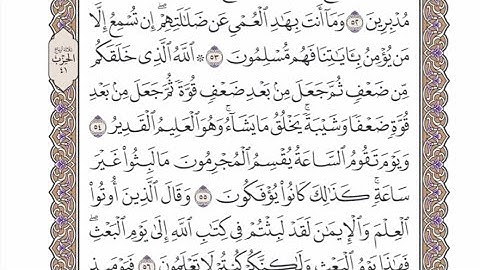 مُدْبِرِينَ ۝٥٢ وَمَآ أَنتَ بِهَٰدِ ٱلْعُمْىِ عَن ضَلَٰلَتِهِمْ ۖ إِن تُسْمِعُ إِلَّا
مَن يُؤْمِنُ بِـَٔايَٰتِنَا فَهُم مُّسْلِمُونَ ۝٥٣ ۞ ٱللَّهُ ٱلَّذِى خَلَقَكُم
مِّن ضَعْفٍ ثُمَّ جَعَلَ مِنۢ بَعْدِ ضَعْفٍ قُوَّةً ثُمَّ جَعَلَ مِنۢ بَعْدِ
قُوَّةٍ ضَعْفًا وَشَيْبَةً ۚ يَخْلُقُ مَا يَشَآءُ ۖ وَهُوَ ٱلْعَلِيمُ ٱلْقَدِيرُ ۝٥٤
وَيَوْمَ تَقُومُ ٱلسَّاعَةُ يُقْسِمُ ٱلْمُجْرِمُونَ مَا لَبِثُوا۟ غَيْرَ
سَاعَةٍ ۚ كَذَٰلِكَ كَانُوا۟ يُؤْفَكُونَ ۝٥٥ وَقَالَ ٱلَّذِينَ أُوتُوا۟
ٱلْعِلْمَ وَٱلْإِيمَٰنَ لَقَدْ لَبِثْتُمْ فِى كِتَٰبِ ٱللَّهِ إِلَىٰ يَوْمِ ٱلْبَعْثِ ۖ
فَهَٰذَا يَوْمُ ٱلْبَعْثِ وَلَٰكِنَّكُمْ كُنتُمْ لَا تَعْلَمُونَ ۝٥٦ فَيَوْمَئِذٍ
ثلاثة أرباع
الحزب
٤١